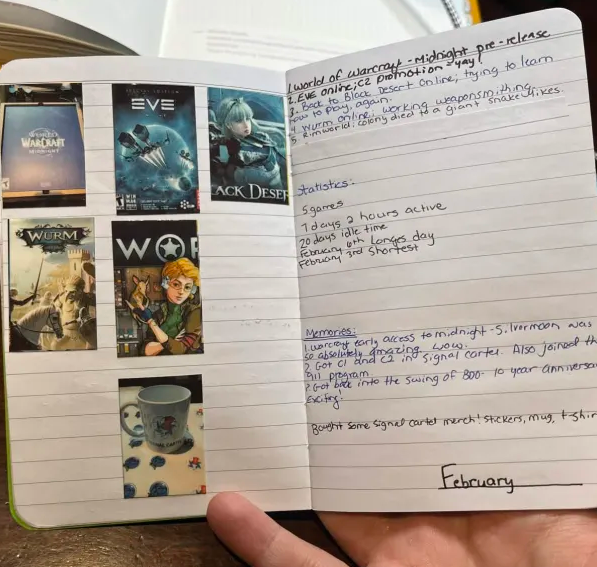 WORLD OF
WARCRAFT
MIDNIGHT
SPECIAL EDITION
EVE
ACK DESER
WURM
WOR
1. World of Warcraft - Midnight pre-release
2. EVE online; C2 promotion = yay!
3. Back to Black Desert Online; trying to learn
how to play, again.
4. Wurm online; working weaponsmithing
5. Rimworld: colony died to a giant snake. Yikes.
Statistics:
5 games
7 days 2 hours active
20 days idle time
February 6th Longes day
February 3rd Shortest
Memories:
1. Warcraft early access to midnight - Silvermoon was
so absolutely amazing. Wow.
2. Got C1 and C2 in Signal cartel. Also joined th
911 program.
3 Got back into the swing of BDO - 10 year anniversa
Exciting!
Bought some Signal cartel merch! Stickers, mug, t-shir
February